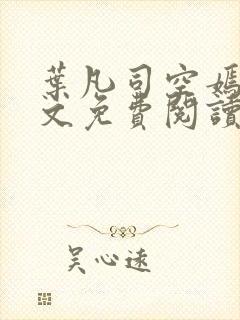 葉凡司空嫣
文免費閱讀
吴心遠